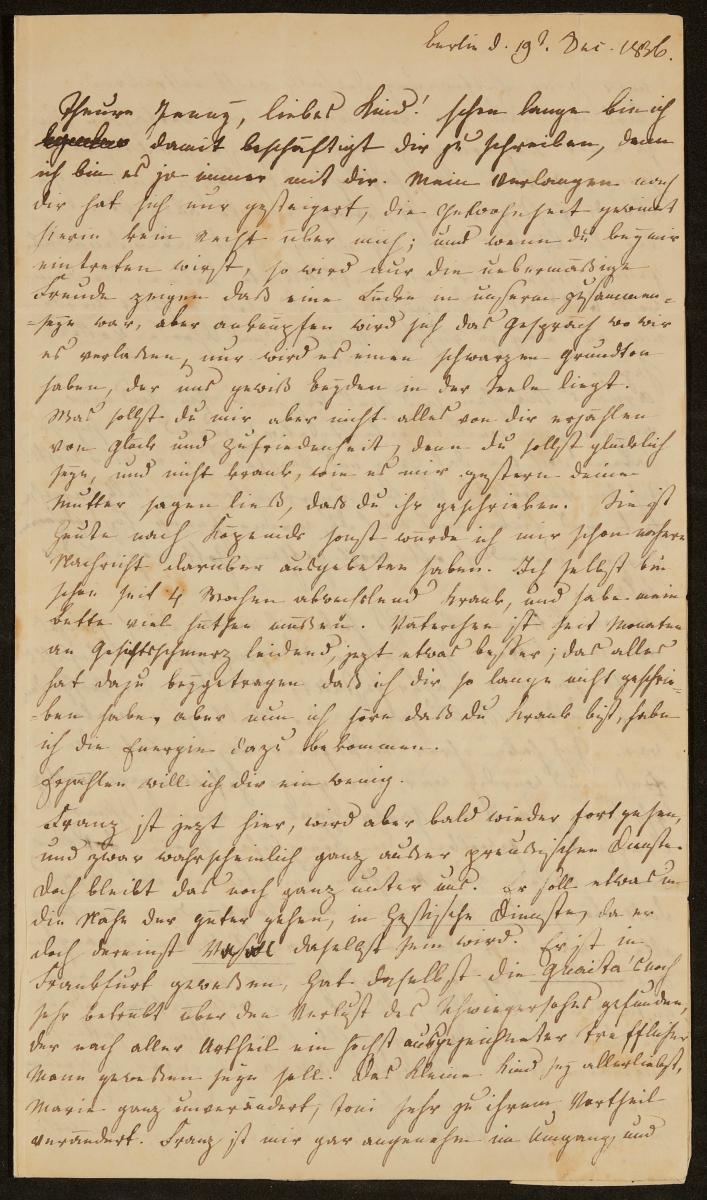 Berlin d. 19t. Dec. 1836.
Theure Jenny, liebes Kind! schon lange bin ich
damit beschäftigt dir zu schreiben, denn
ich bin es ja immer mit dir. Mein Verlangen nach
dir hat sich nur gesteigert, die Gewohnheit gewinnt
hierin kein Recht über mich; und wenn du bey mir
eintreten wirst, so wird nur die uebermäßige
Freude zeigen daß eine Lücke in unserm Zusammen-
-seyn war, aber anknüpfen wird sich das Gespräch wo wir
es verlaßen, nur wird es einen schwarzen Grundton
haben, der uns gewiß beyden in der Seele liegt.
Was sollst du mir aber nicht alles von dir erzählen
von Glück und Zufriedenheit, denn du sollst glücklich
seyn, und nicht krank, wie es mir gestern deine
Mutter sagen ließ, daß du ihr geschrieben. Sie ist
heute nach Köpenick sonst würde ich mir schon nähere
Nachricht darüber ausgebeten haben. Ich selbst bin
schon seit 4 Wochen abwechslend krank, und habe mein
Bette viel hüthen müßen. Väterchen ist seit Monaten
an Gesichtsschmerz leidend, jezt etwas besser; das alles
hat dazu beygetragen daß ich dir so lange nicht geschrie-
-ben habe, aber nun ich höre daß du krank bist, habe
ich die Energie dazu bekommen.
Erzählen will ich dir ein wenig.
Franz ist jezt hier, wird aber bald wieder fortgehen,
und zwar wahrscheinlich ganz außer preußischen Dienste
doch bleibt das noch ganz unter uns. Er soll etwas in
die Nähe der Güter gehen, in Hessische Dienste, da er
doch dereinst Vasall daselbst sein wird. Er ist in
Frankfurt gewesen, hat daselbst die Guaita's noch
sehr betrübt über den Verlust des Schwiegersohns gefunden,
der nach aller Urtheil ein höchst ausgezeichneter trefflicher
Mann gewesen seyn soll. Das kleine Kind sey allerliebst,
Marie ganz unverändert, Toni sehr zu ihrem Vortheil
verändert. Franz ist mir gar angenehm im Umgang, und